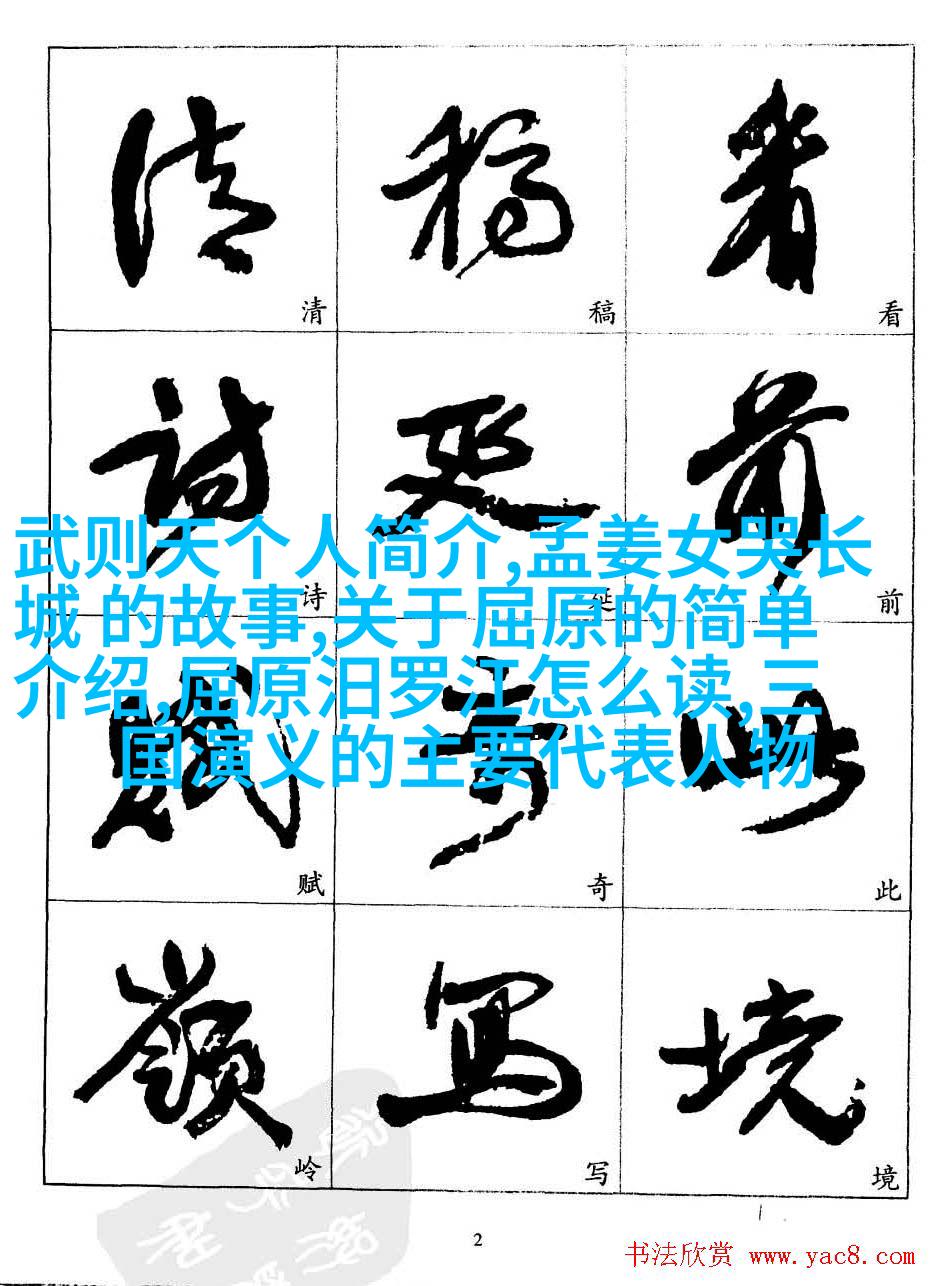 清 稿 看
诗 延 前
武则天个人简介,孟姜女哭长
城 的故事,关于屈原的简单
介绍,屈原汨罗江怎么读,三
国演义的主要代表人物
赋 奇 此
岭 写 境
2
书法欣赏 www.yac8.com